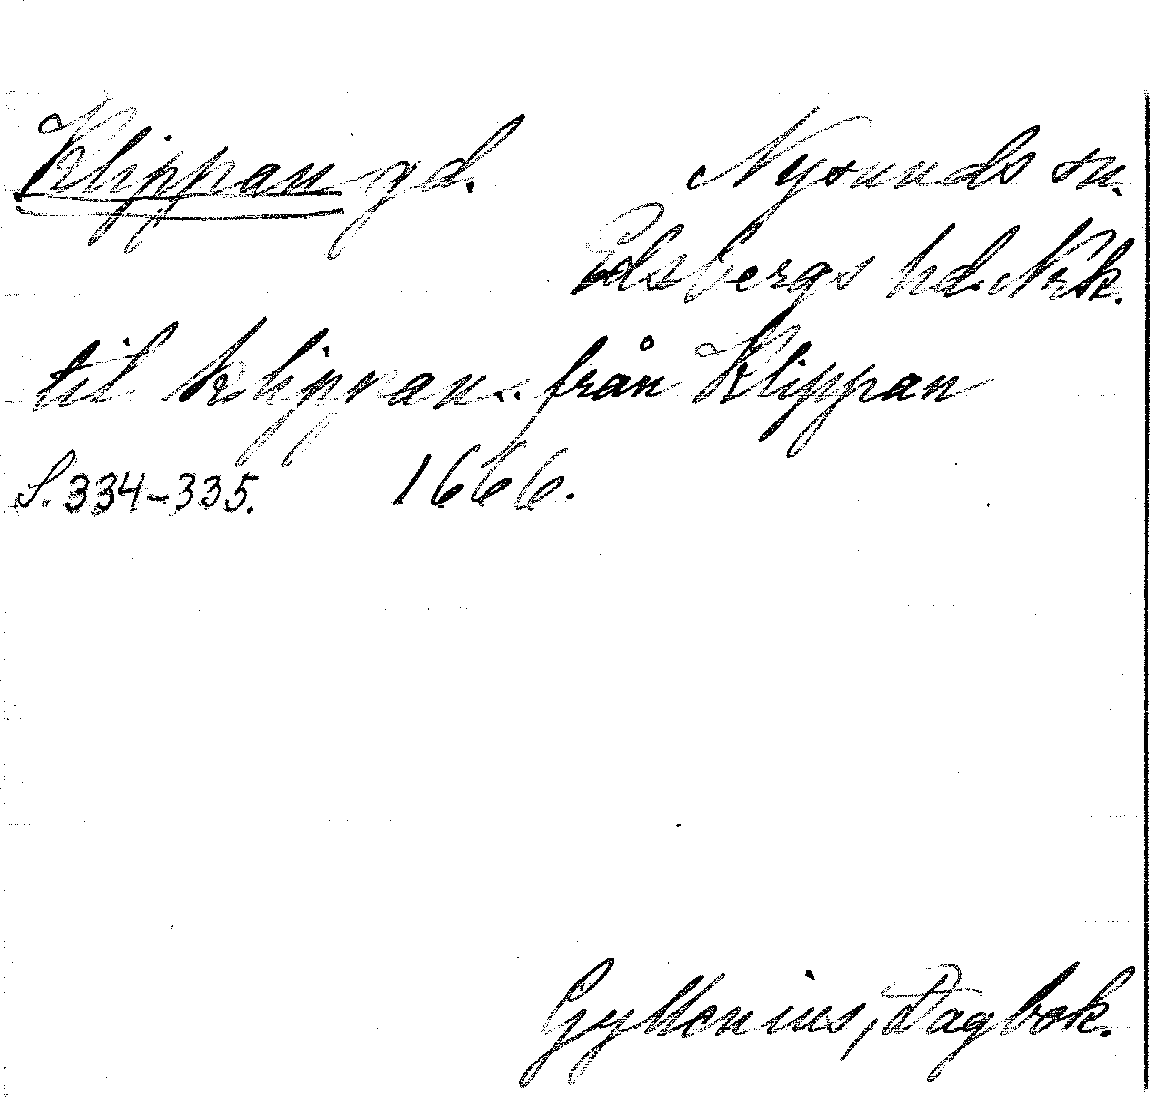 Klippan gd. Nysunds sn.
Edsbergs hd. Nrk.
til klippan.. från Klippan
S. 334-335. 1666.
Gyllenius, Dagbok.